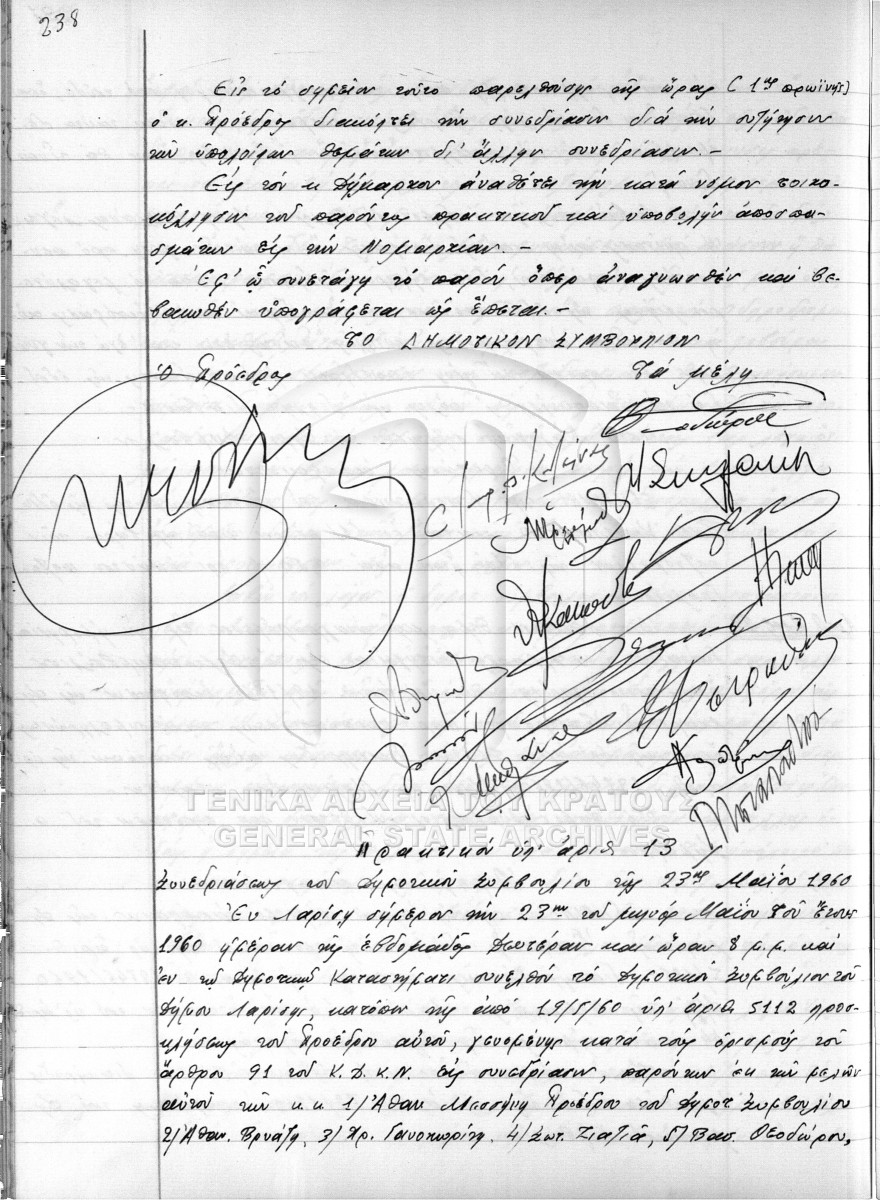 238
Εἰς τό σημεῖον τοῦτο παρελθούσης τῆς ὥρας (1ης πρωϊνῆς)
ὁ κ. Πρόεδρος διακόπτει τήν συνεδρίασιν διά τήν συζήτησιν
τῶν ὑπολοίπων θεμάτων δι' ἄλλην συνεδρίασιν.-
Εἰς τόν κ Δήμαρχον ἀναθέτει τήν κατά νόμον τοιχο-
κόλλησιν τοῦ παρόντος πρακτικοῦ καί ὑποβολήν ἀποσπα-
σμάτων εἰς τήν Νομαρχίαν.-
Ἐφ' ᾧ συνετάγη τό παρόν ὅπερ ἀναγνωσθέν καί βε-
βαιωθέν ὑπογράφεται ὡς ἕπεται.-
ΤΟ ΔΗΜΟΤΙΚΟΝ ΣΥΜΒΟΥΛΙΟΝ
Ὁ Πρόεδρος Τά μέλη
ΓΕΝΙΚΑ ΑΡΧΕΙΑ ΤΟΥ ΚΡΑΤΟΥΣ
GENERAL STATE ARCHIVES
Πρακτικόν ὑπ' ἀριθ 13
Συνεδριάσεως τοῦ Δημοτικοῦ Συμβουλίου τῆς 23ης Μαΐου 1960
Ἐν Λαρίσῃ σήμερον τήν 23ην τοῦ μηνός Μαΐου τοῦ ἔτους
1960 ἡμέραν τῆς ἑβδομάδος Δευτέραν καί ὥραν 8 μ.μ. καί
ἐν τῷ Δημοτικῷ Καταστήματι συνελθόν τό Δημοτικόν Συμβούλιον τοῦ
Δήμου Λαρίσης, κατόπιν τῆς ἀπό 19/5/60 ὑπ' ἀριθ. 5112 προσ-
κλήσεως τοῦ Προέδρου αὐτοῦ, γενομένης κατά τούς ὁρισμούς τοῦ
ἄρθρου 91 τοῦ Κ.Δ.Κ.Ν. εἰς συνεδρίασιν, παρόντων ἐκ τῶν μελῶν
αὐτοῦ τῶν κ.κ 1/ Ἀθαν Μεσσήνη Προέδρου τοῦ Δημοτ Συμβουλίου
2/ Ἀθαν. Βρυάζη, 3/ Χρ. Γανοπωρίτη 4/ Σωτ. Ζιαζιᾶ, 5/ Βασ. Θεοδώρου,